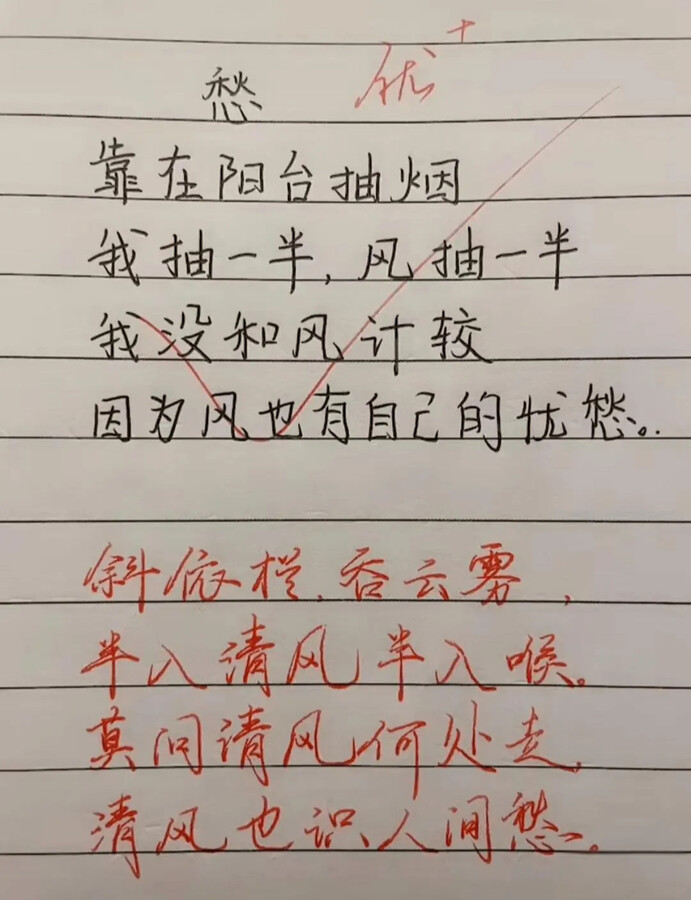 愁 优+
靠在阳台抽烟
我抽一半，风抽一半
我没和风计较
因为风也有自己的忧愁。
斜依栏，吞云雾，
半入清风半入喉。
莫问清风何处走，
清风也识人间愁。